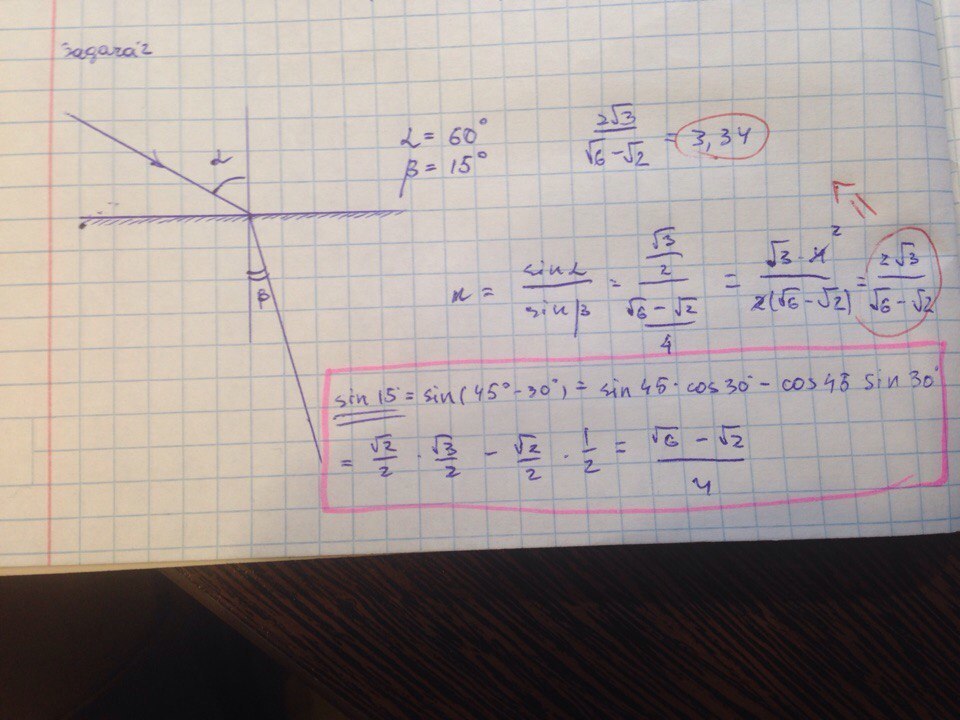 Задача 2
α
β
α = 60°
β = 15°
2√3 / (√6 - √2) = 3,34
n = sin α / sin β = (√3/2) / ((√6 - √2)/4) = √3 · 4 2 / 2(√6 - √2) = 2√3 / (√6 - √2)
sin 15 = sin(45° - 30°) = sin 45 · cos 30° - cos 45 sin 30°
= √2/2 · √3/2 - √2/2 · 1/2 = (√6 - √2) / 4